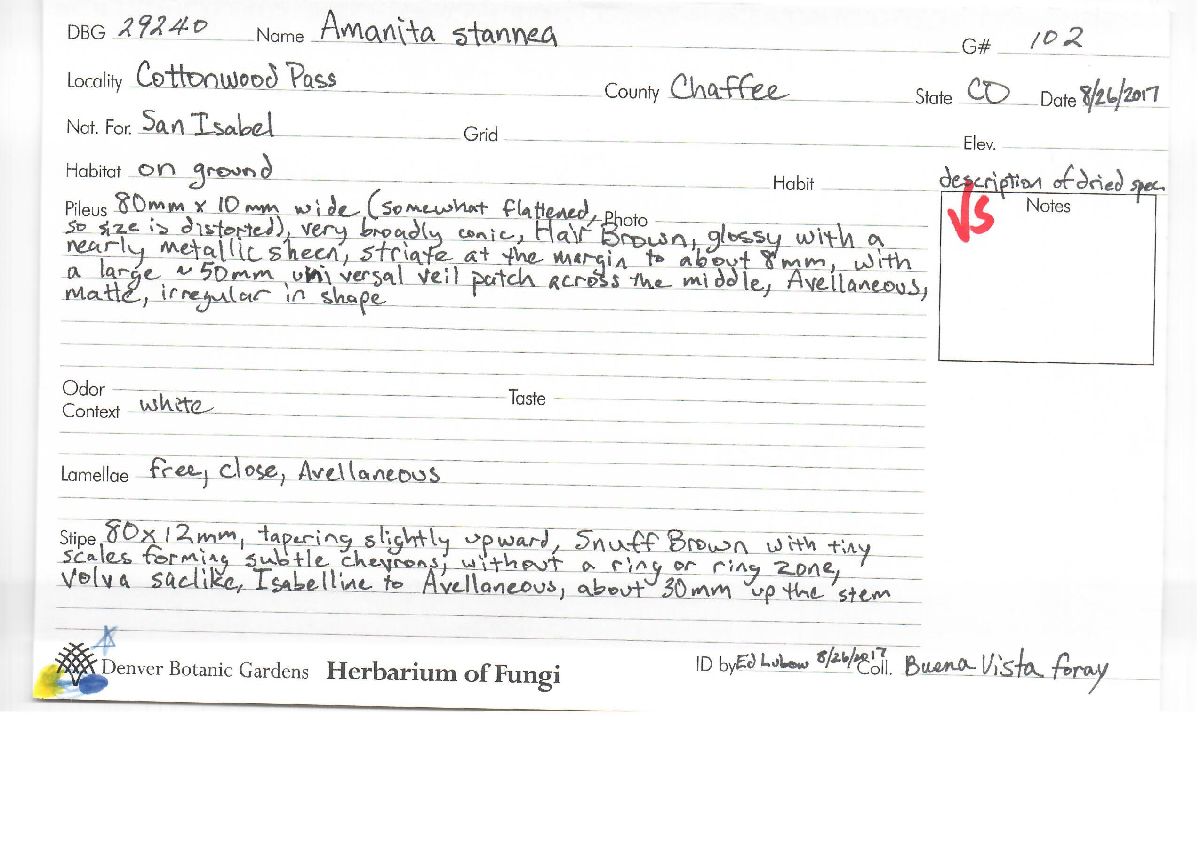 DBG 29240 Name Amanita stannea G# 102
Locality Cottonwood Pass County Chaffee State CO Date 8/26/2017
Nat. For. San Isabel Grid Elev.
Habitat on ground Habit description of dried spec.
Pileus 80mm x 10mm wide (somewhat flattened, Photo
so size is distorted), very broadly conic, Hair Brown, glossy with a
nearly metallic sheen, striate at the margin to about 8mm, with
a large ~50mm universal veil patch across the middle, Avellaneous,
matte, irregular in shape
VS Notes
Odor Taste
Context white
Lamellae free, close, Avellaneous
Stipe 80x12mm, tapering slightly upward, Snuff Brown with tiny
scales forming subtle chevrons, without a ring or ring zone,
Volva saclike, Isabelline to Avellaneous, about 30mm up the stem
Denver Botanic Gardens Herbarium of Fungi ID by Ed Lubow 8/26/2017 Coll. Buena Vista foray